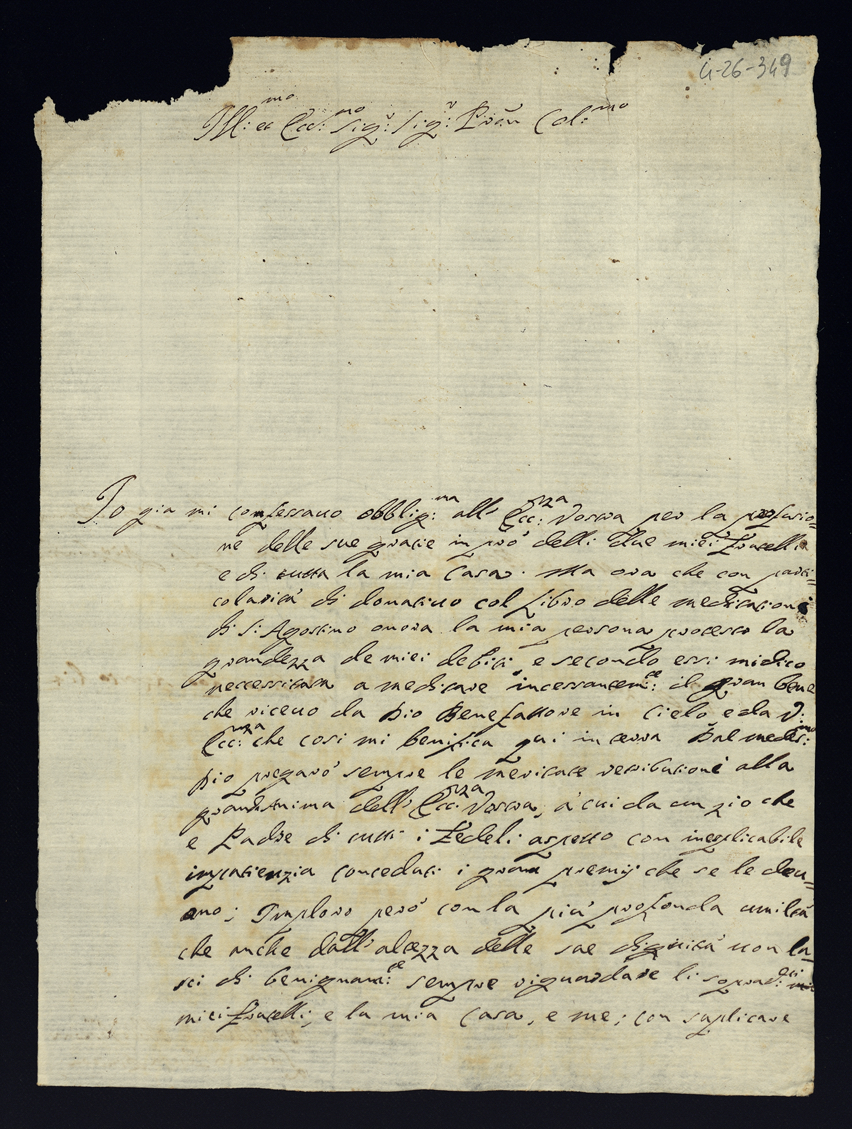 4-26-349
Ill:mo et Ecc:mo Sig:r Sig:r Pron Col:mo
Io gia mi confessavo obblig:ma all' Ecc:nza Vostra per la profusio=
ne delle sue grazie in prò delli due miei Fratelli
e di tutta la mia Casa. Ma ora che con parti=
colarità di donativo col Libro delle meditationi
di S: Agostino onora la mia persona protesto la
grandezza de miei debiti, e secondo essi mi dico
neccessitata a medicare incessantem:te il gran bene
che ricevo da Dio Benefattore in Cielo, e da V:
Ecc:nza che così mi benifica qui in terra. Dal medes:mo
Dio pregarò sempre le meritate retributioni alla
grand'anima dell' Ecc:nza Vostra, à cui da un zio che
e Padre di tutti i Fedeli aspetto con inesplicabile
impatienzia conceduti i gran premij che se le dev=
ano; Imploro però con la più profonda umiltà
che anche dall' altezza delle sue dignità non la=
sci di benignam:te sempre riguardare li sopradetti
miei Fratelli, e la mia Casa, e me; con suplicare